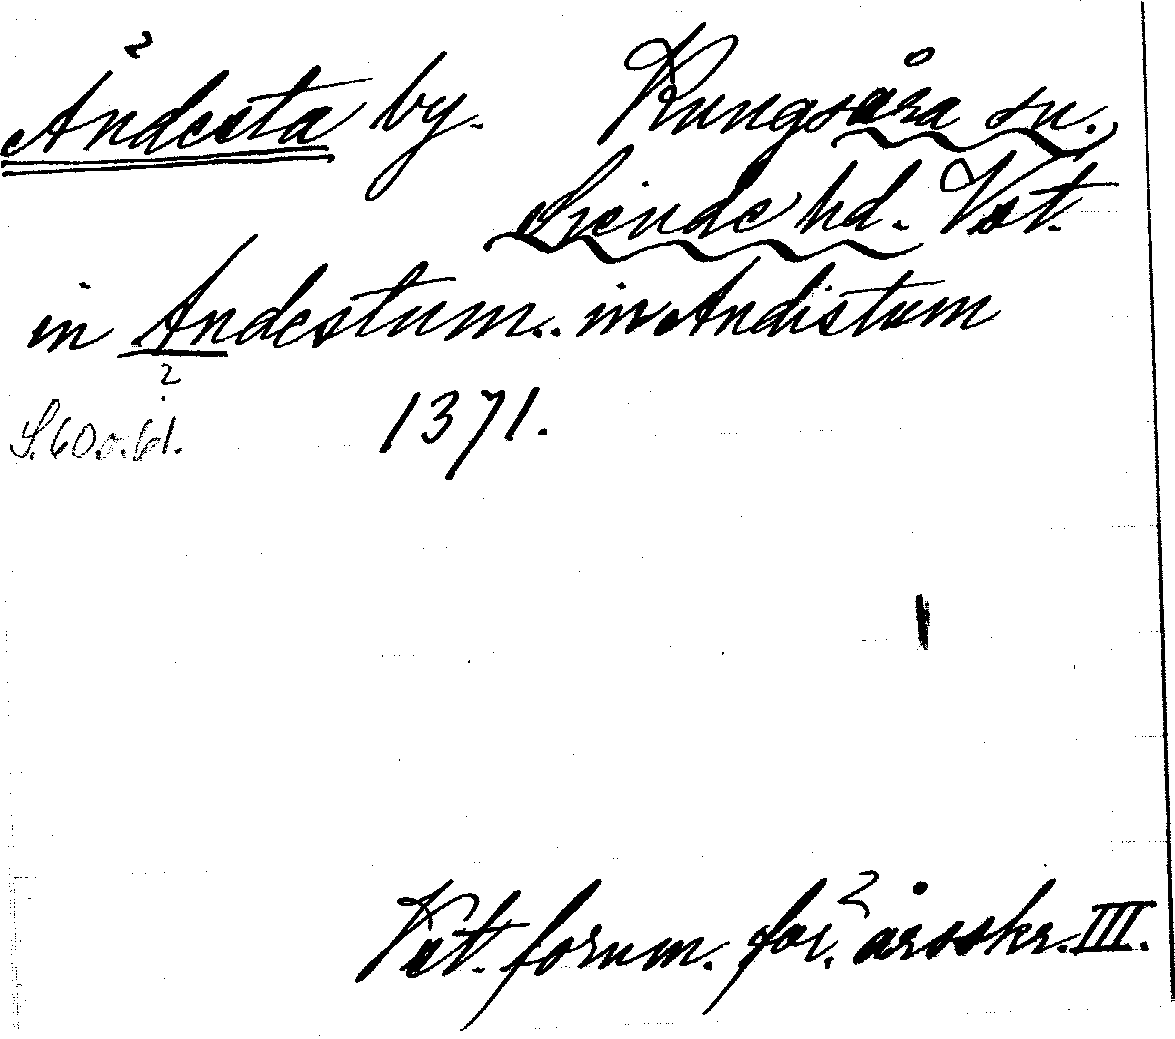 Åndesta by. Kungsåra sn.
Siende hd. Vst.
in Andestum.. in Andistum
2
S. 60 o. 61. 1371.
Vst. fornm. för. årsskr. III.